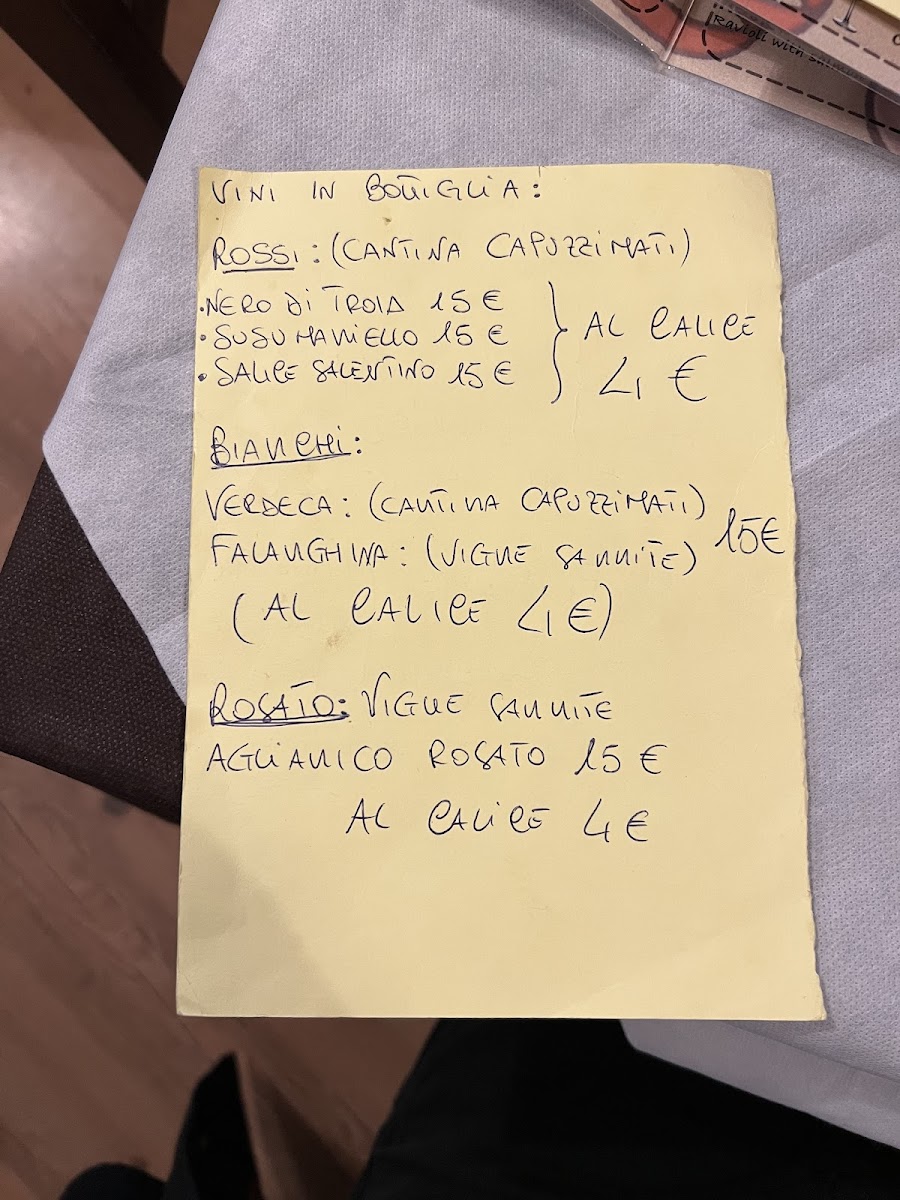 Ravioli with
VINI IN BOTTIGLIA:
ROSSI: (CANTINA CAPUZZIMATI)
•NERO DI TROIA 15 €
•SUSUMANIELLO 15 €
•SALICE SALENTINO 15 €
} AL CALICE
4 €
BIANCHI:
VERDECA: (CANTINA CAPUZZIMATI)
FALANGHINA: (VIGNE SANNITE)
15€
(AL CALICE 4€)
ROSATO: VIGNE SANNITE
AGLIANICO ROSATO 15 €
AL CALICE 4€